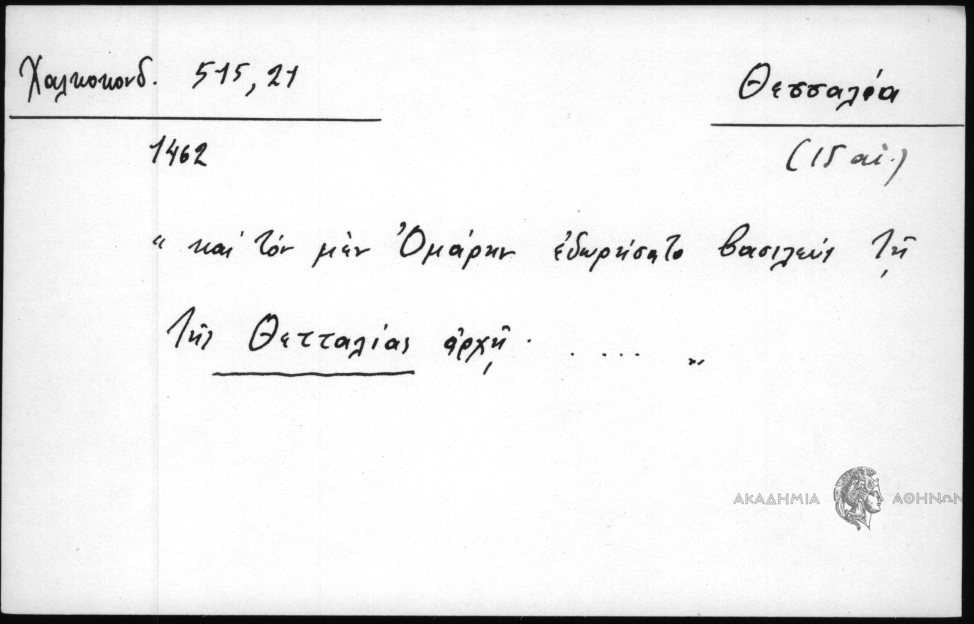 Χαλκοκονδ. 515,21
Θεσσαλία
1462
(15 αἰ.)
“ καὶ τὸν μὲν Ὀμάρην ἐδωρήσατο βασιλεὺς τῇ
τῆς Θετταλίας ἀρχῇ . . . . . . ”
ΑΚΑΔΗΜΙΑ ΑΘΗΝΩΝ